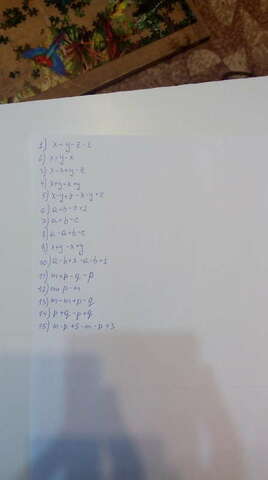 1) x-y-z-1
2) x-y-x
3) x-x+y-z
4) x+y-x+y
5) x-y+z-x-y+2
6) a+b-c+2
7) a+b-c
8) a-a+b-c
9) x+y-x+y
10) a-b+3-a-b+1
11) m+p-q-p
12) m p-m
13) m-m+p-q
14) p+q-p+q
15) m-p+5-m-p+3